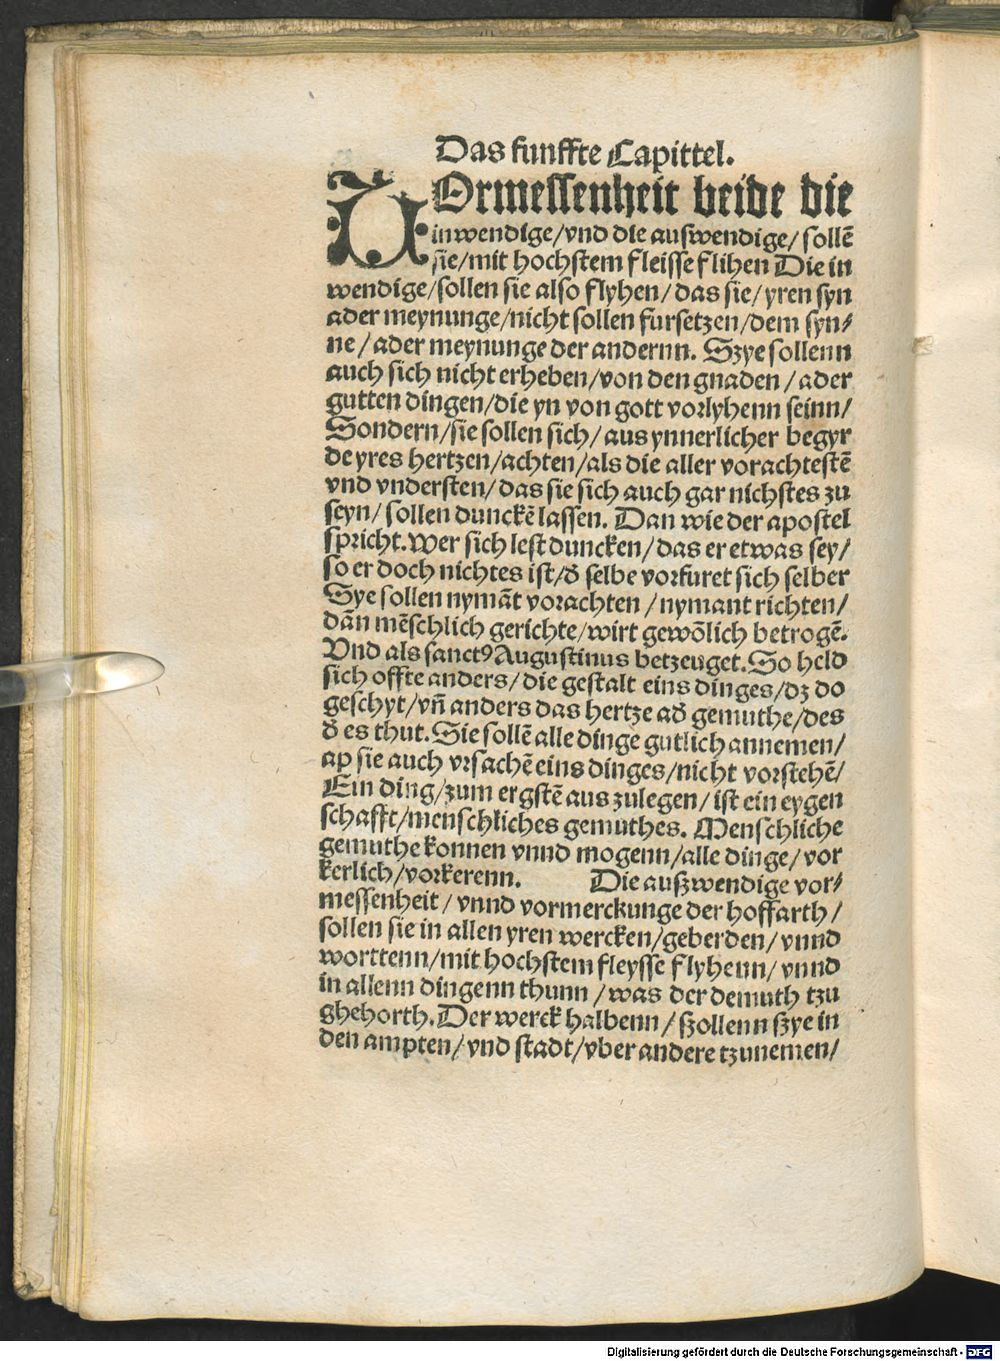 Das funffte Capittel.
VOrmessenheit beide die
inwendige/vnd die auswendige/ sollē
sie/mit hochstem fleisse flihen Die in
wendige/sollen sie also flyhen/das sie/yren syn
ader meynunge/nicht sollen fursetzen/dem syn⸗
ne/ader meynunge der andernn. Szye sollenn
auch sich nicht erheben/von den gnaden/ader
gutten dingen/die yn von gott vorlyhenn seinn/
Sondern/sie sollen sich/aus ynnerlicher begyr
de yres hertzen/achten/als die aller vorachtestē
vnd vndersten/das sie sich auch gar nichstes zu
seyn/sollen dunckē lassen. Dan wie der apostel
spricht.Wer sich lest duncken/das er etwas sey/
so er doch nichtes ist/đ selbe vorfuret sich selber
Sye sollen nymāt vorachten/nymant richten/
dan mēschlich gerichte/wirt gewōlich betrogē.
Vnd als sanctꝰ Augustinus betzeuget.So held
sich offte anders/die gestalt eins dinges/dz do
geschyt/vn̄ anders das hertze ađ gemuthe/des
đ es thut.Sie sollē alle dinge gutlich annemen/
ap sie auch vrsachē eins dinges/nicht vorstehē/
Ein ding/zum ergstē aus zulegen/ist ein eygen
schafft/menschliches gemuthes. Menschliche
gemuthe konnen vnnd mogenn/alle dinge/vor
kerlich/vorkerenn. Die außwendige vor⸗
messenheit/vnnd vormerckunge der hoffarth/
sollen sie in allen yren wercken/geberden/vnnd
worttenn/mit hochstem fleysse flyhenn/vnnd
in allenn dingenn thunn/was der demuth tzu
ghehorth.Der werck halbenn/szollenn szye in
den ampten/vnd stadt/vber andere tzunemen/
Digitalisierung gefördert durch die Deutsche Forschungsgemeinschaft - DFG